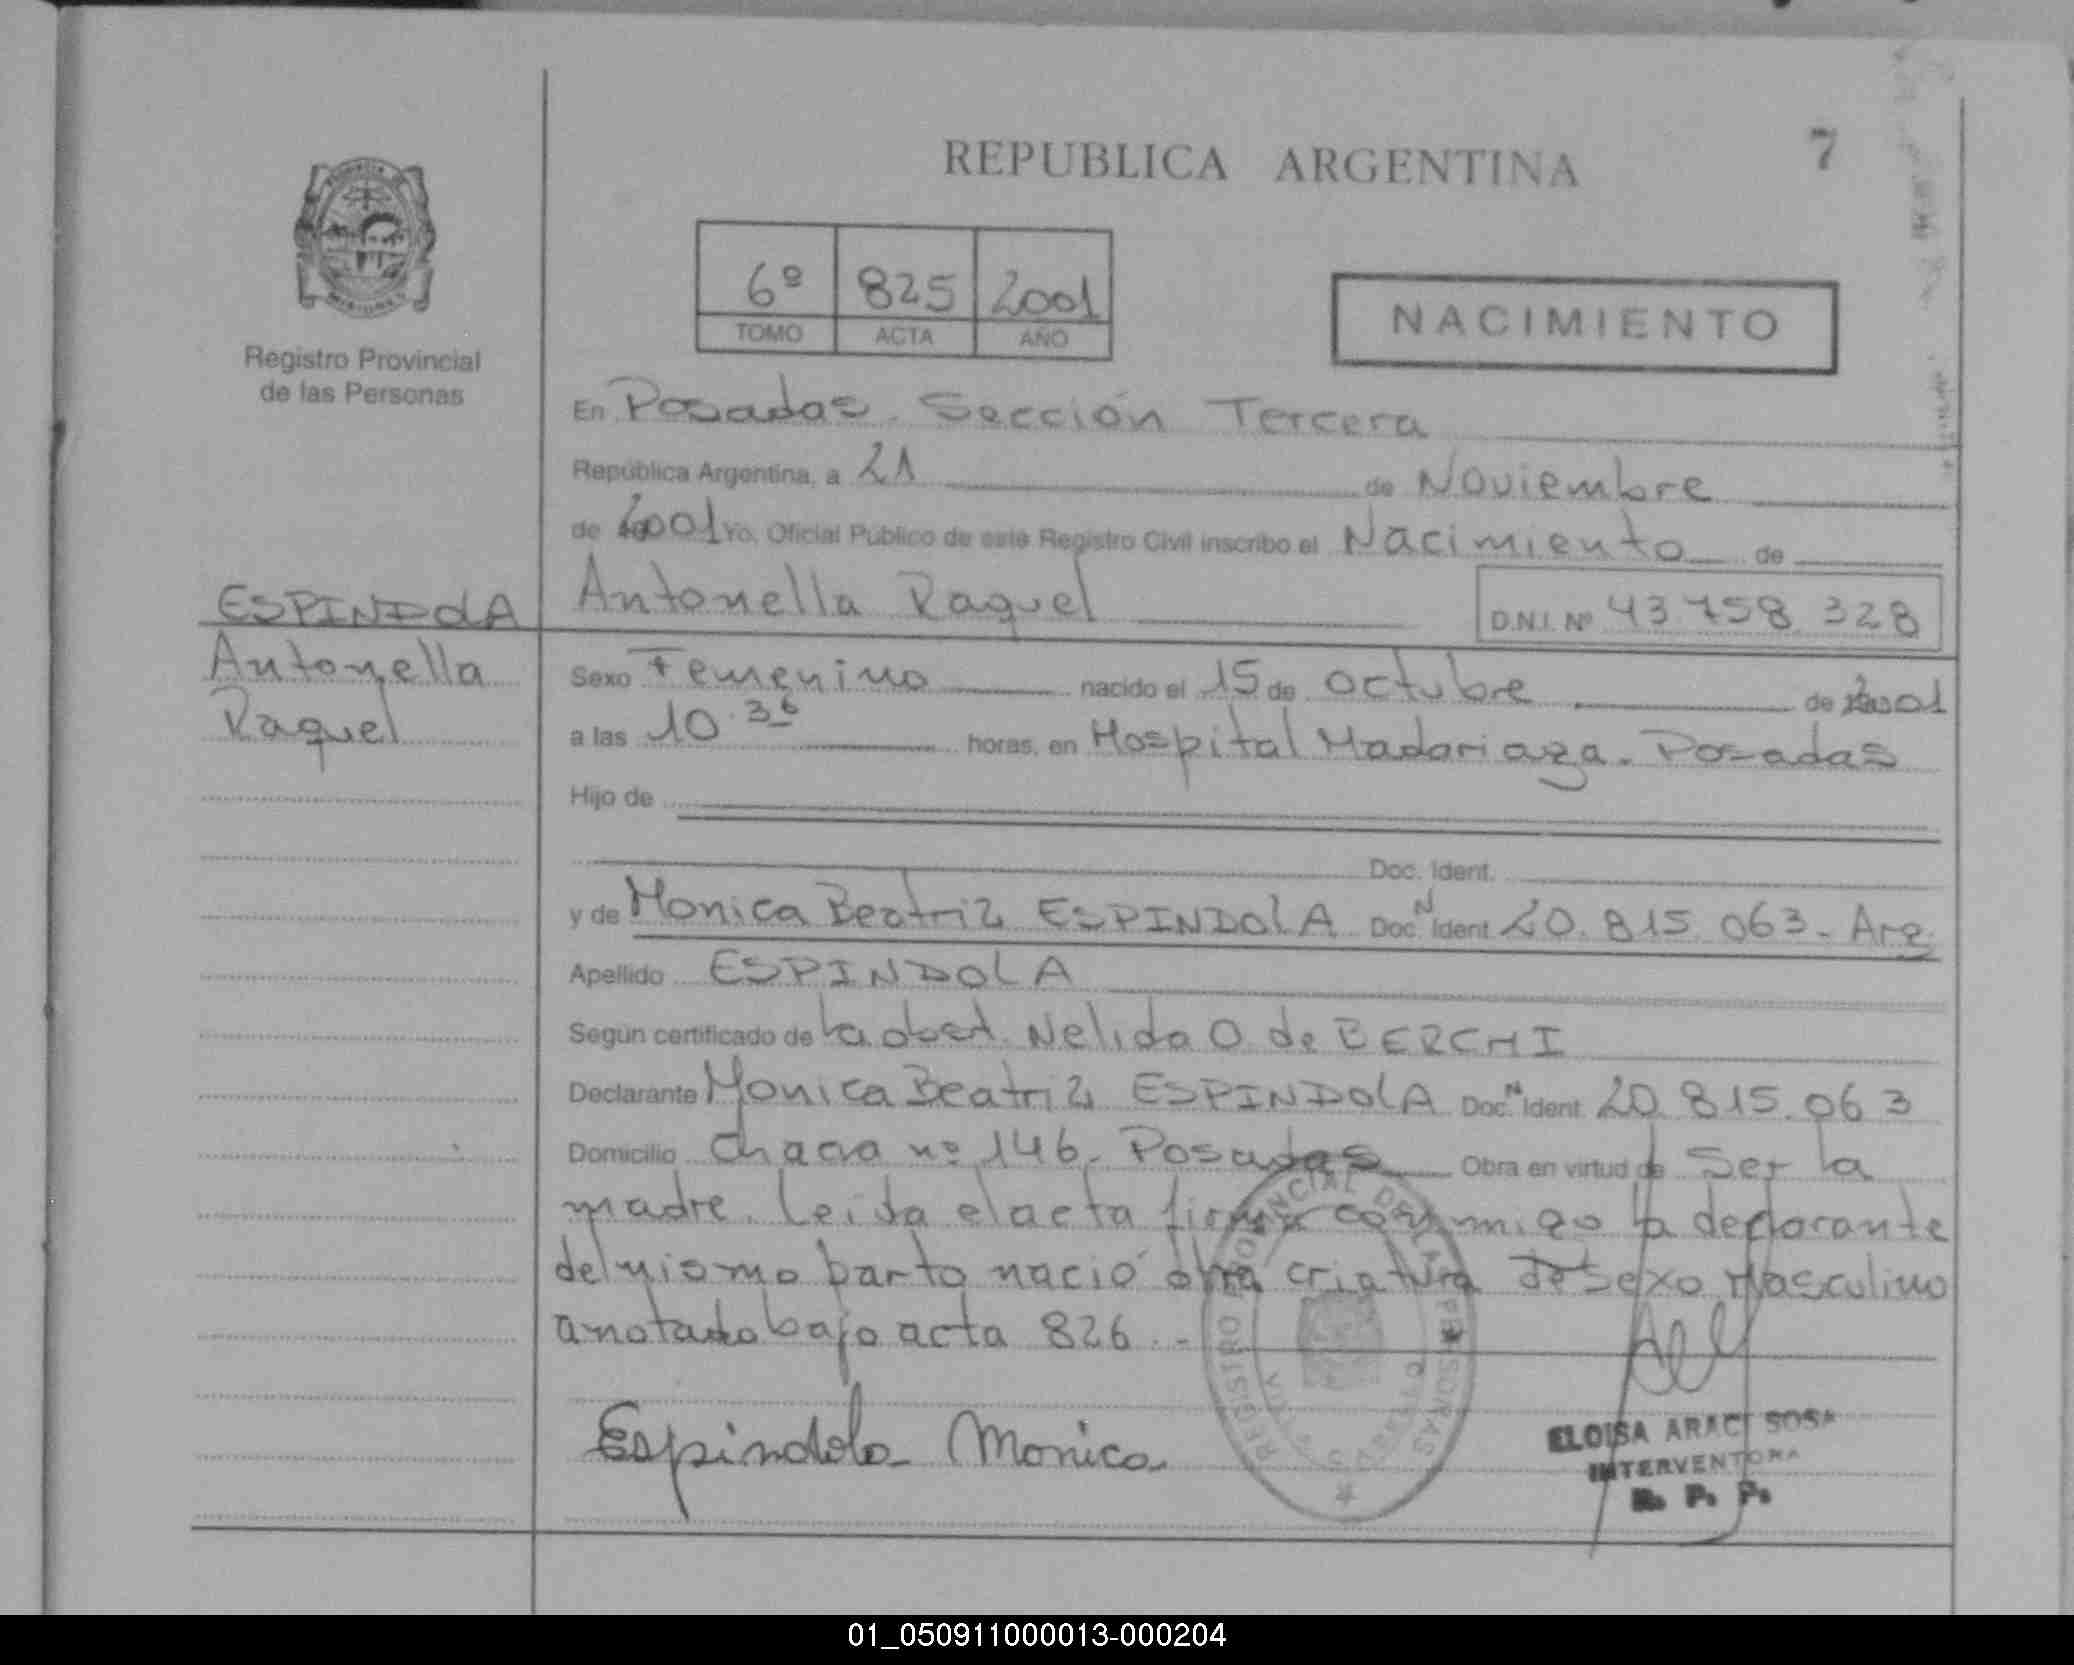 REPUBLICA ARGENTINA
7
6º 825 2001
TOMO ACTA AÑO
NACIMIENTO
Registro Provincial
de las Personas
En Posadas. Sección Tercera
República Argentina, a 21 de Noviembre
de 2001 Yo, Oficial Público de este Registro Civil inscribo el Nacimiento de
Antonella Raquel D.N.I. Nº 43 758 328
ESPINDOLA
Antonella
Raquel
Sexo Femenino nacido el 15 de octubre de 2001
a las 10.36 horas, en Hospital Madariaga. Posadas
Hijo de
Doc. Ident.
y de Monica Beatriz ESPINDOLA Doc. N Ident. 20.815.063 - Arg
Apellido ESPINDOLA
Según certificado de la obst. Nelida O. de BERCHI
Declarante Monica Beatriz ESPINDOLA Doc. N Ident. 20.815.063
Domicilio Chacra nº 146. Posadas Obra en virtud de Ser la
madre. Leida el acta firma conmigo la declarante
del mismo parto nació otra criatura de sexo Masculino
anotado bajo acta 826. -
Espindola Monica
ELOISA ARACI SOSA
INTERVENTORA
R. P. P.
01_050911000013-000204